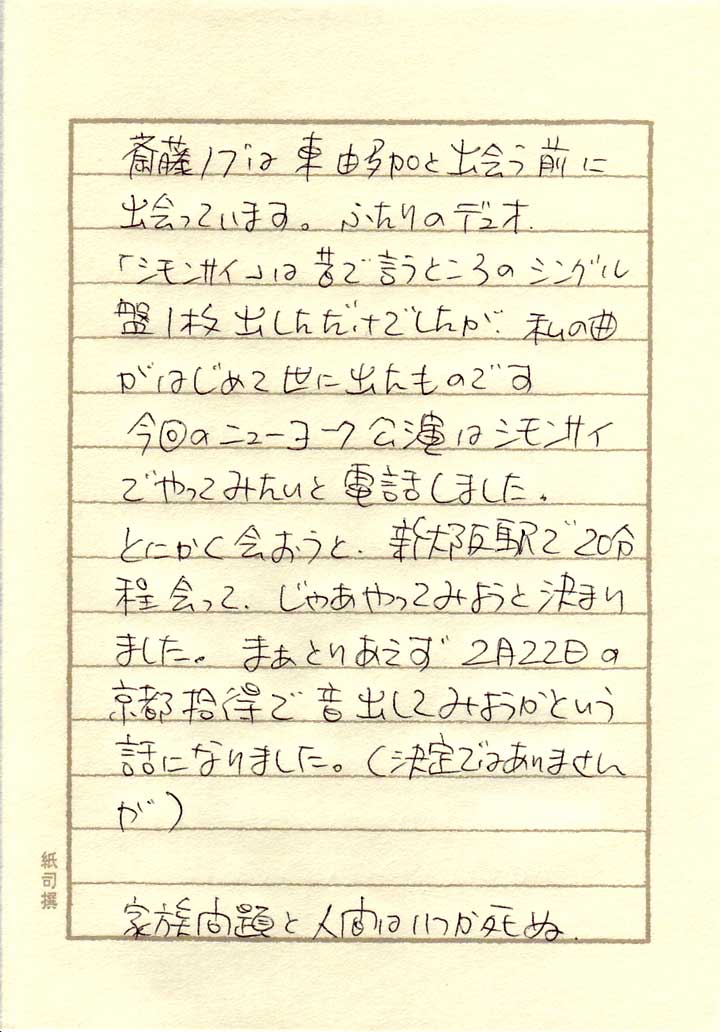 斎藤ノブは東由多加と出会う前に
出会っています。ふたりのデュオ.
「シモンサイ」は昔で言うところのシングル
盤1枚出しただけでしたが、私の曲
がはじめて世に出たものです
今回のニューヨーク公演はシモンサイ
でやってみたいと電話しました。
とにかく会おうと、新大阪駅で20分
程会って、じゃあやってみようと決まり
ました。まぁとりあえず2月22日の
京都拾得で音出してみようかという
話になりました。(決定ではありません
が)
家族問題と人間はいつか死ぬ.
紙司撰